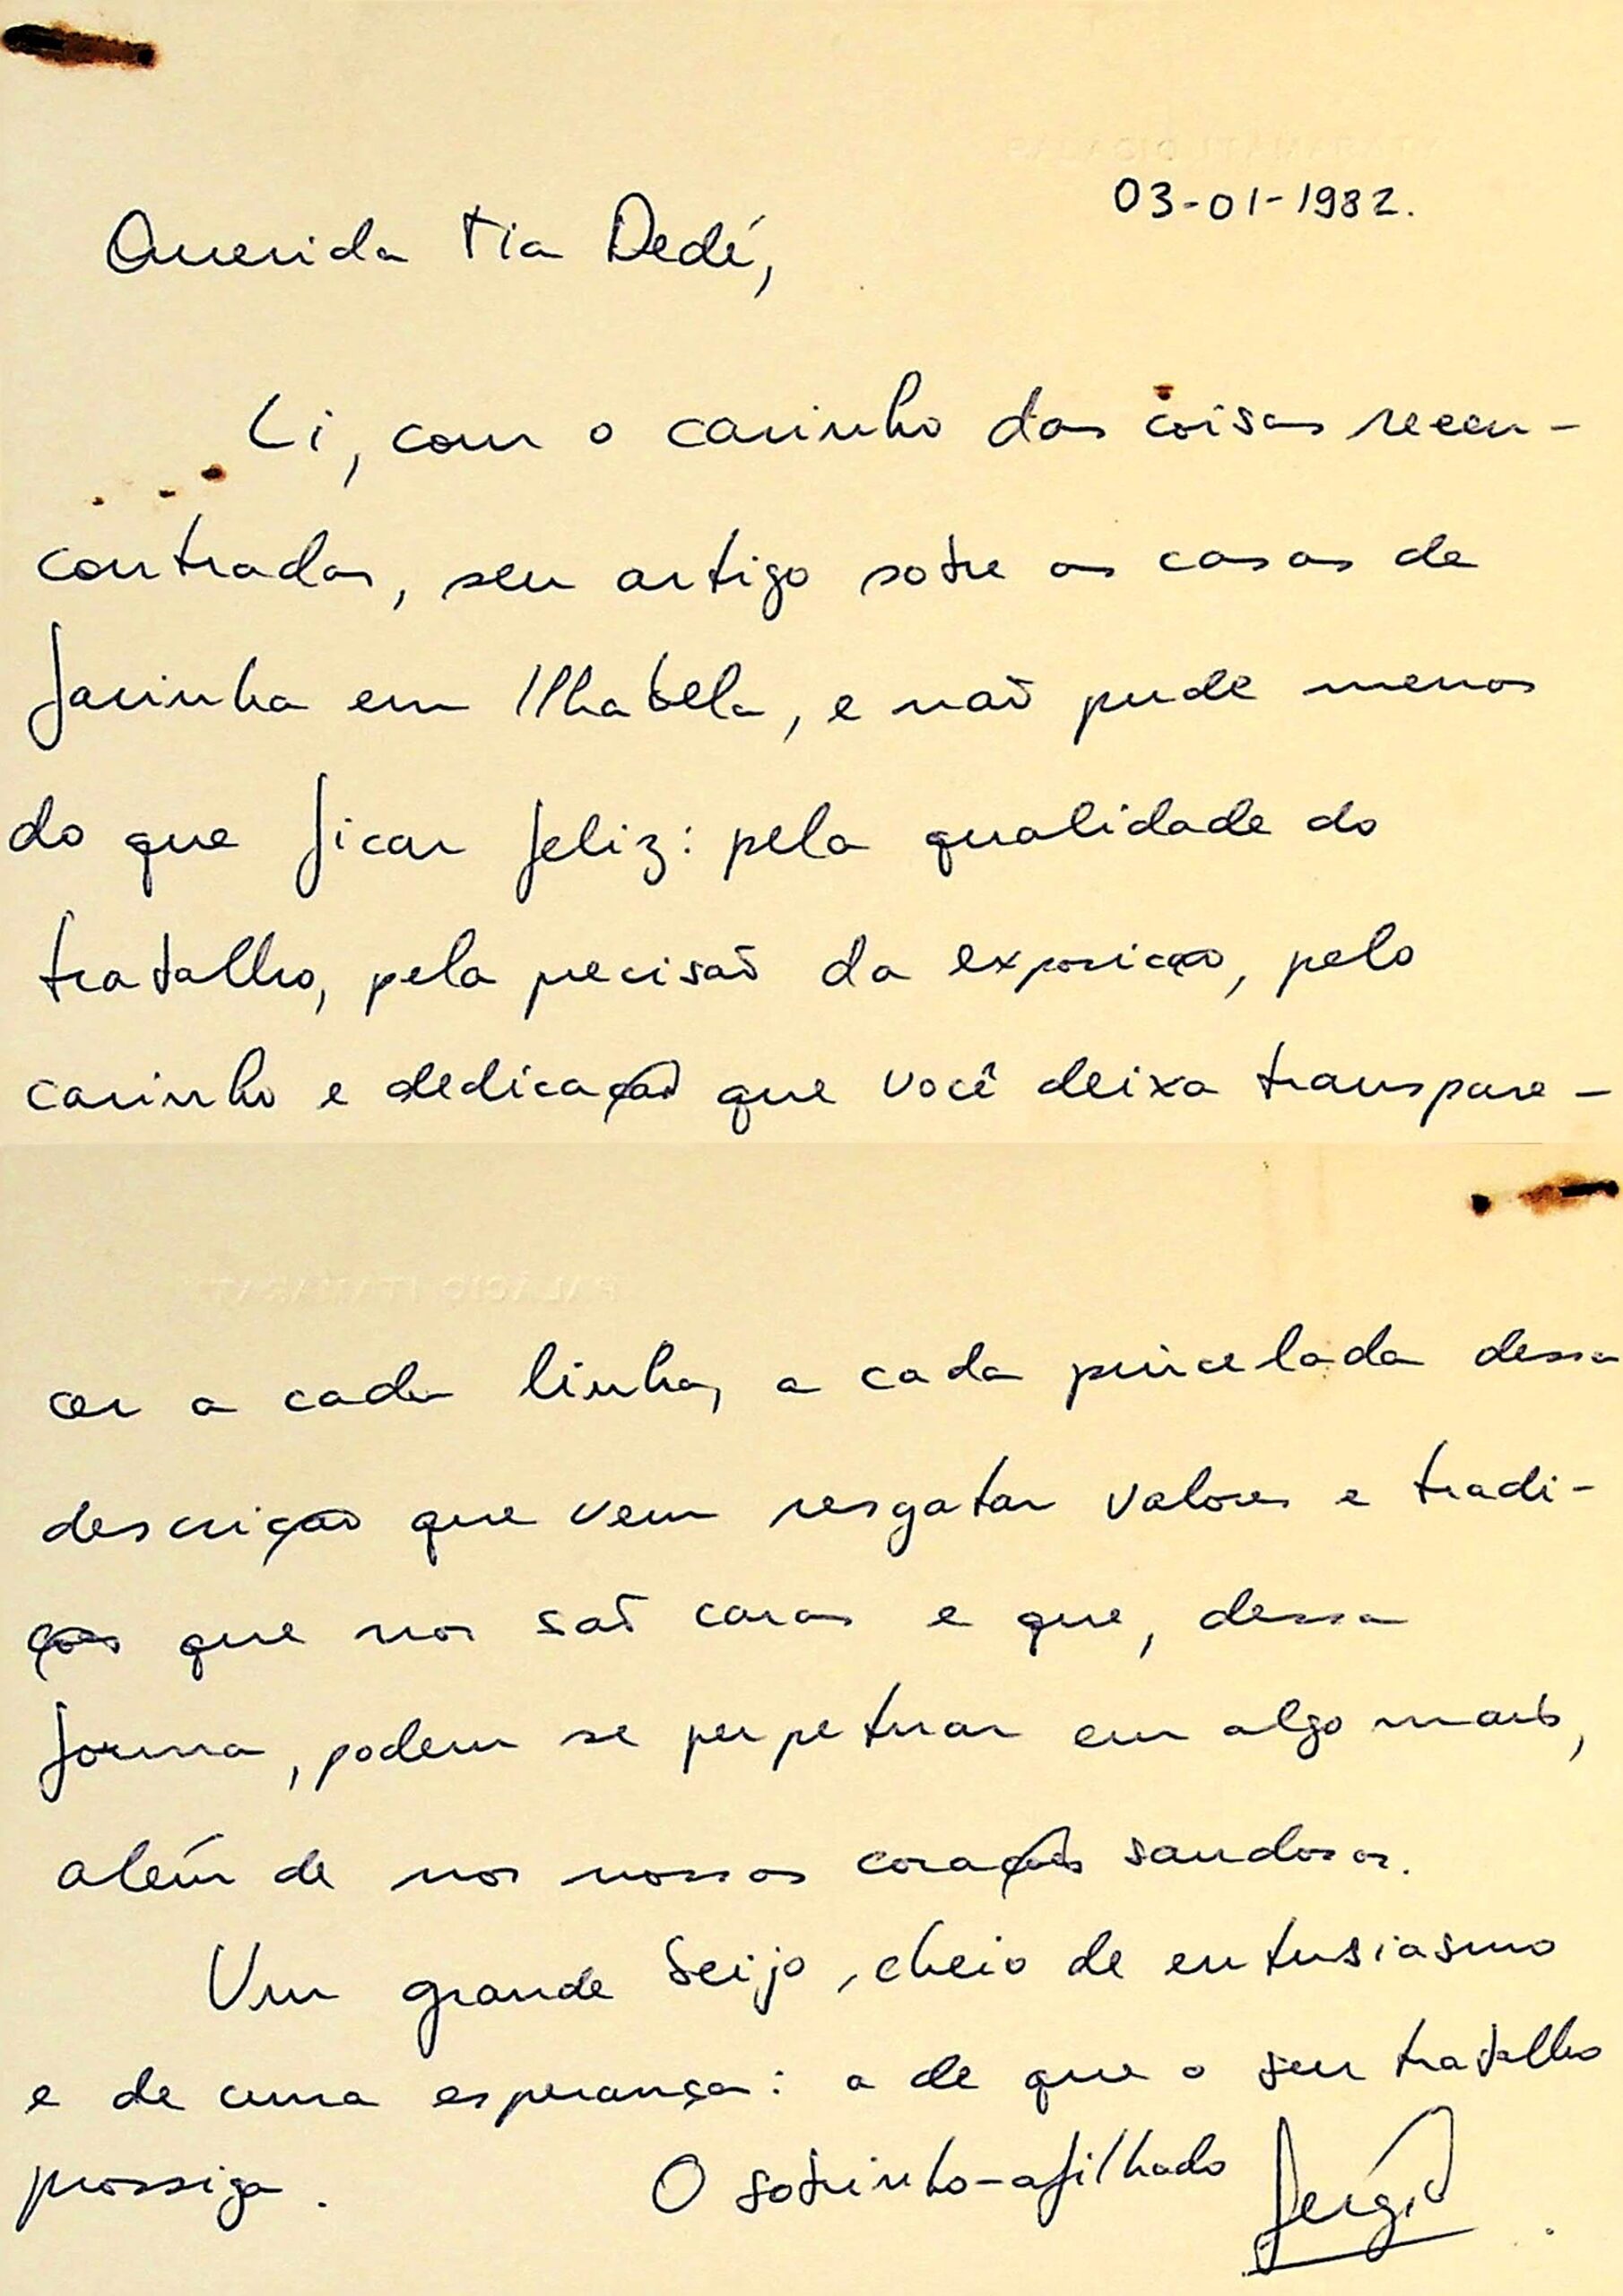 03-01-1982.
Querida tia Dedé,
Li, com o carinho das coisas reen-
contradas, seu artigo sobre as casas de
farinha em Ilhabela, e não pude menos
do que ficar feliz: pela qualidade do
trabalho, pela precisão da exposição, pelo
carinho e dedicação que você deixa transpare-
PALÁCIO ITAMARATY
cer a cada linha, a cada pincelada dessa
descrição que vem resgatar valores e tradi-
ções que nos são caras e que, dessa
forma, podem se perpetuar em algo mais,
além de nos nossos corações saudosos.
Um grande beijo, cheio de entusiasmo
e de uma esperança: a de que o seu trabalho
prossiga.
O sobrinho-afilhado Sérgio.